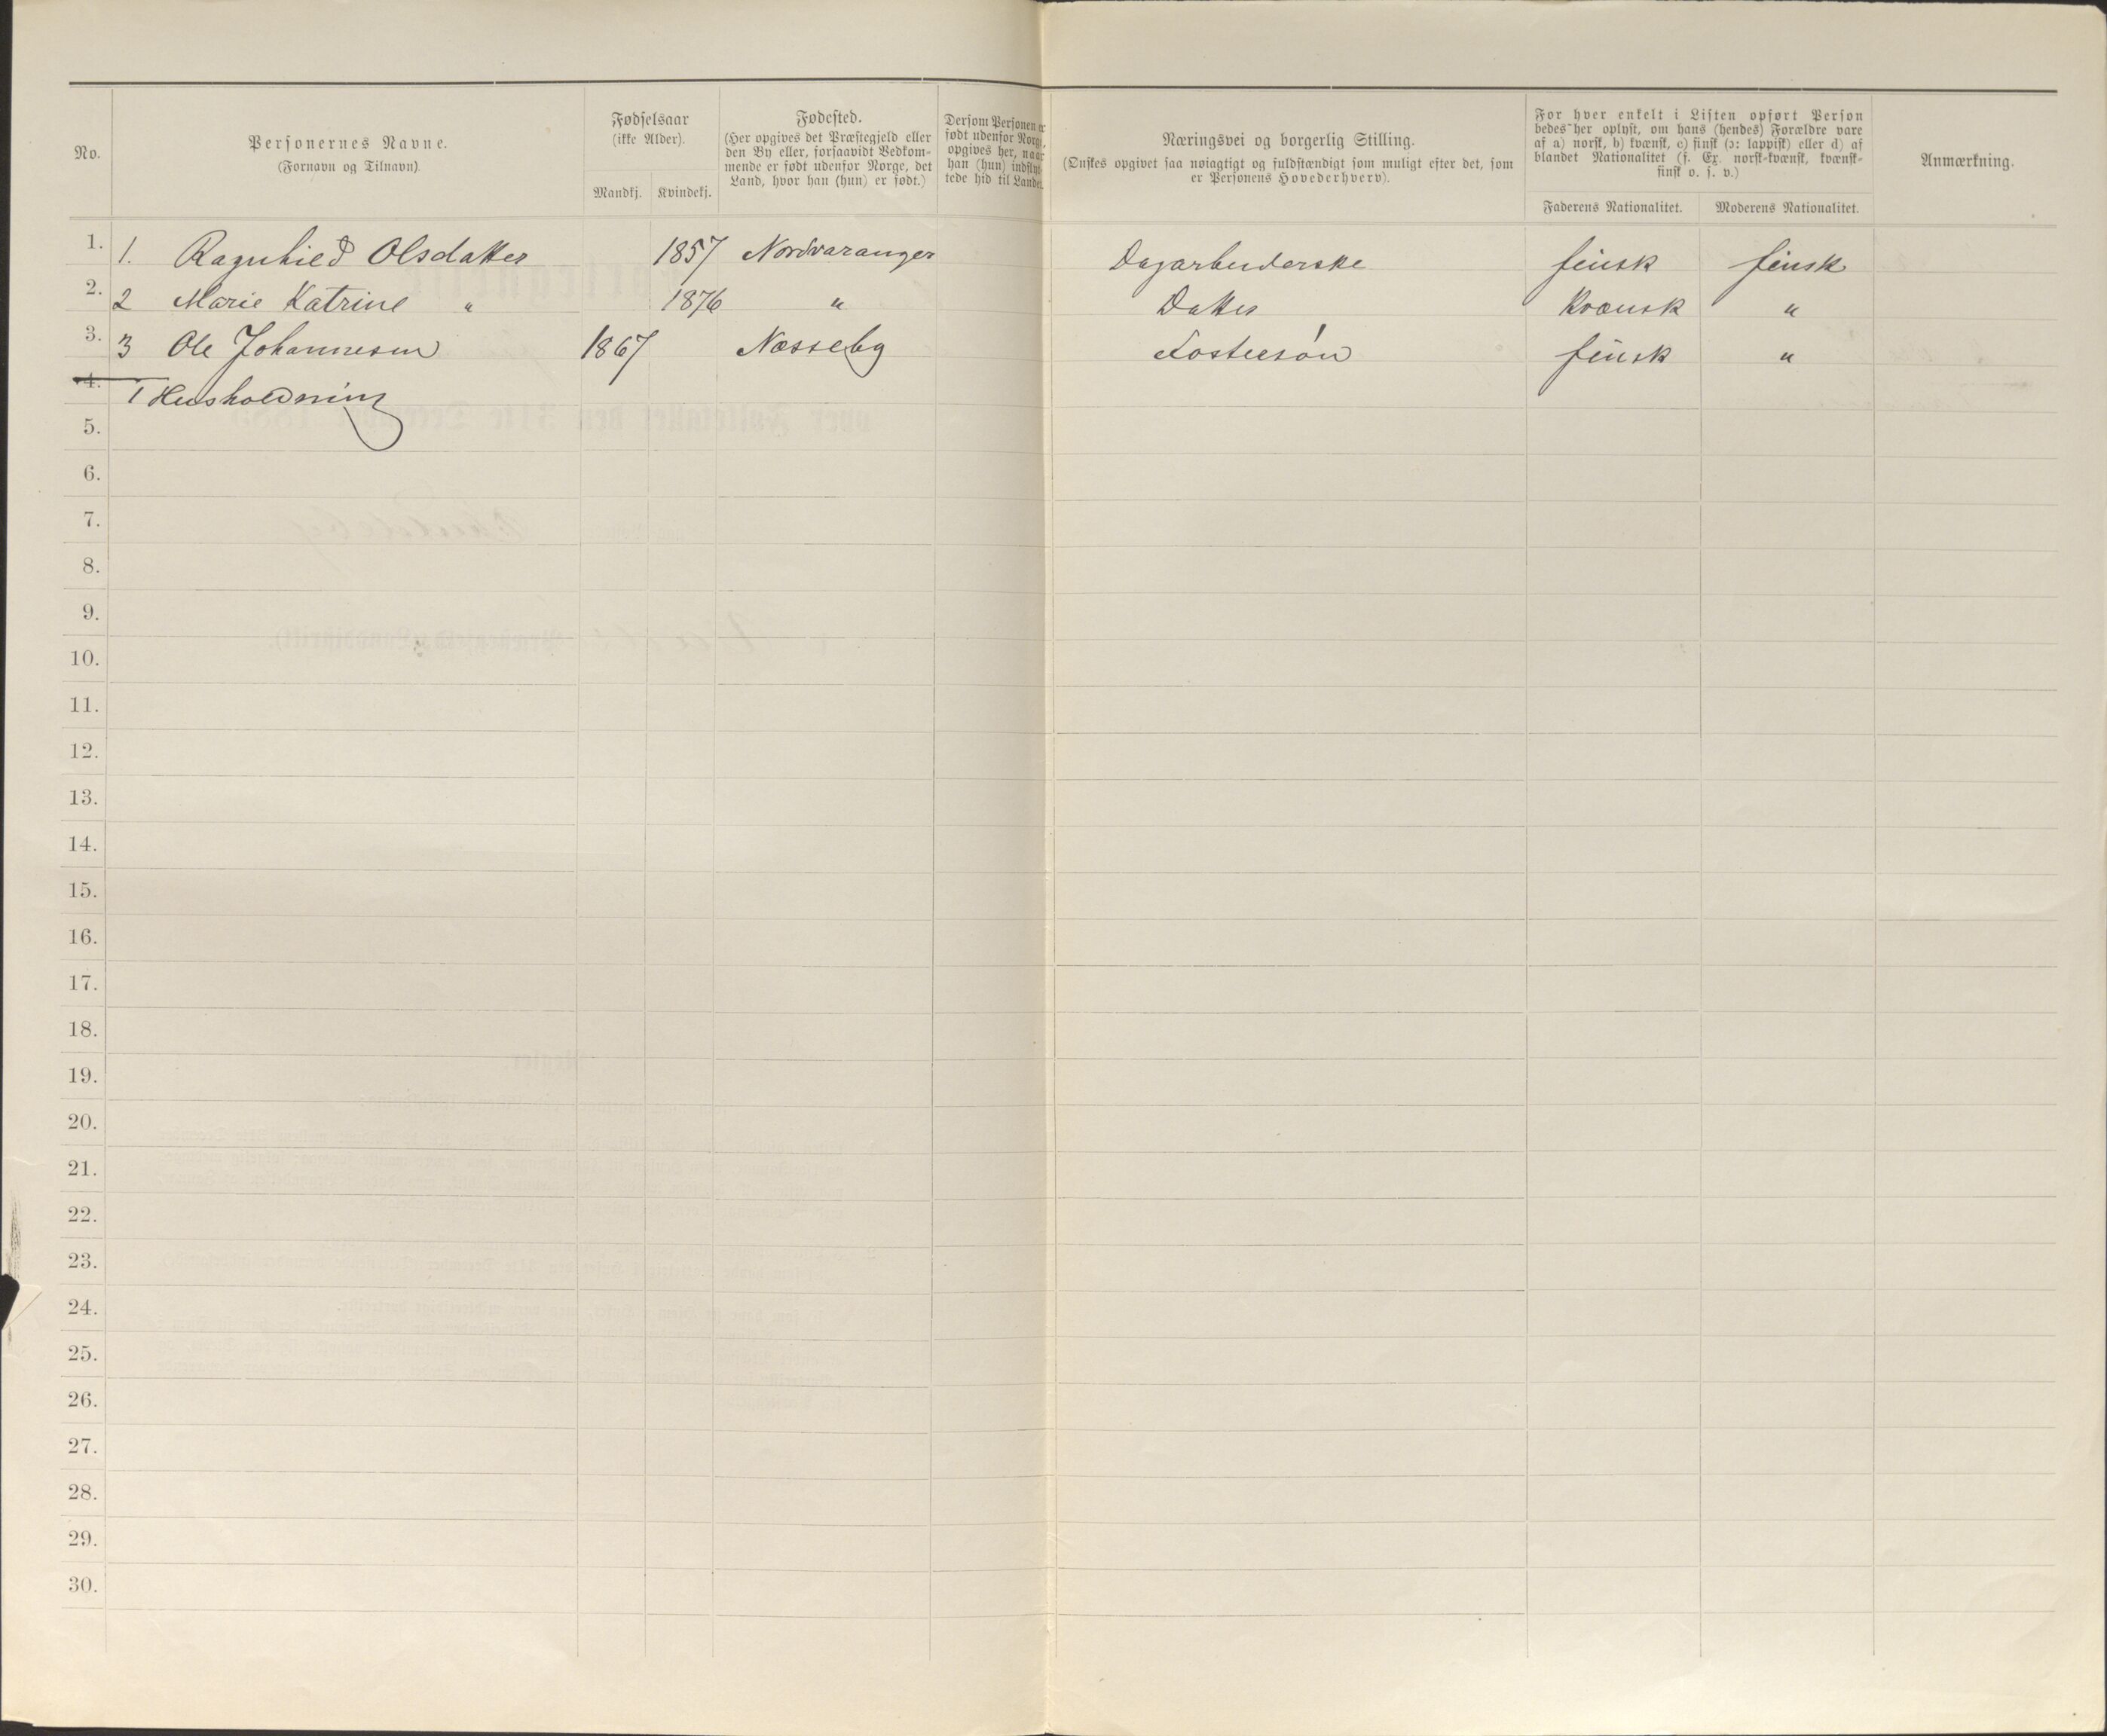 No.
Personernes Navne.
(Fornavn og Tilnavn).
Fødselsaar
(ikke Alder).
Mandkj. Kvindekj.
Fødested.
(Her opgives det Præstegjeld eller
den By eller, forsaavidt Vedkom-
mende er født udenfor Norge, det
Land, hvor han (hun) er født.)
Dersom Personen er
født udenfor Norge,
opgives her, naar
han (hun) indflyt-
tede hid til Landet.
Næringsvei og borgerlig Stilling.
(Ønskes opgivet saa nøiagtigt og fuldstændigt som muligt efter det, som
er Personens Hovederhverv).
For hver enkelt i Listen opført Person
bedes her oplyst, om hans (hendes) Forældre vare
af a) norsk, b) kvænsk, c) finsk (ɔ: lappisk) eller d) af
blandet Nationalitet (f. Ex. norsk-kvænsk, kvænsk-
finsk o. s. v.)
Faderens Nationalitet. Moderens Nationalitet.
Anmærkning.
1. 1. Ragnhild Olsdatter 1857 Nordvaranger Dagarbeiderske finsk finsk
2. 2 Marie Katrine " 1876 " Datter Kvænsk "
3. 3 Ole Johannesen 1867 Næsseby Fostersøn finsk "
4. 1 Husholdning
5.
6.
7.
8.
9.
10.
11.
12.
13.
14.
15.
16.
17.
18.
19.
20.
21.
22.
23.
24.
25.
26.
27.
28.
29.
30.